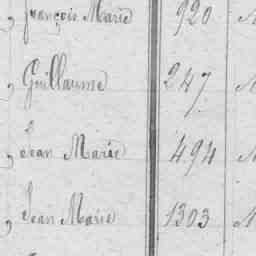 , François Marie 920
, Guillaume 247
, Jean Marie 494
, Jean Marie 1303